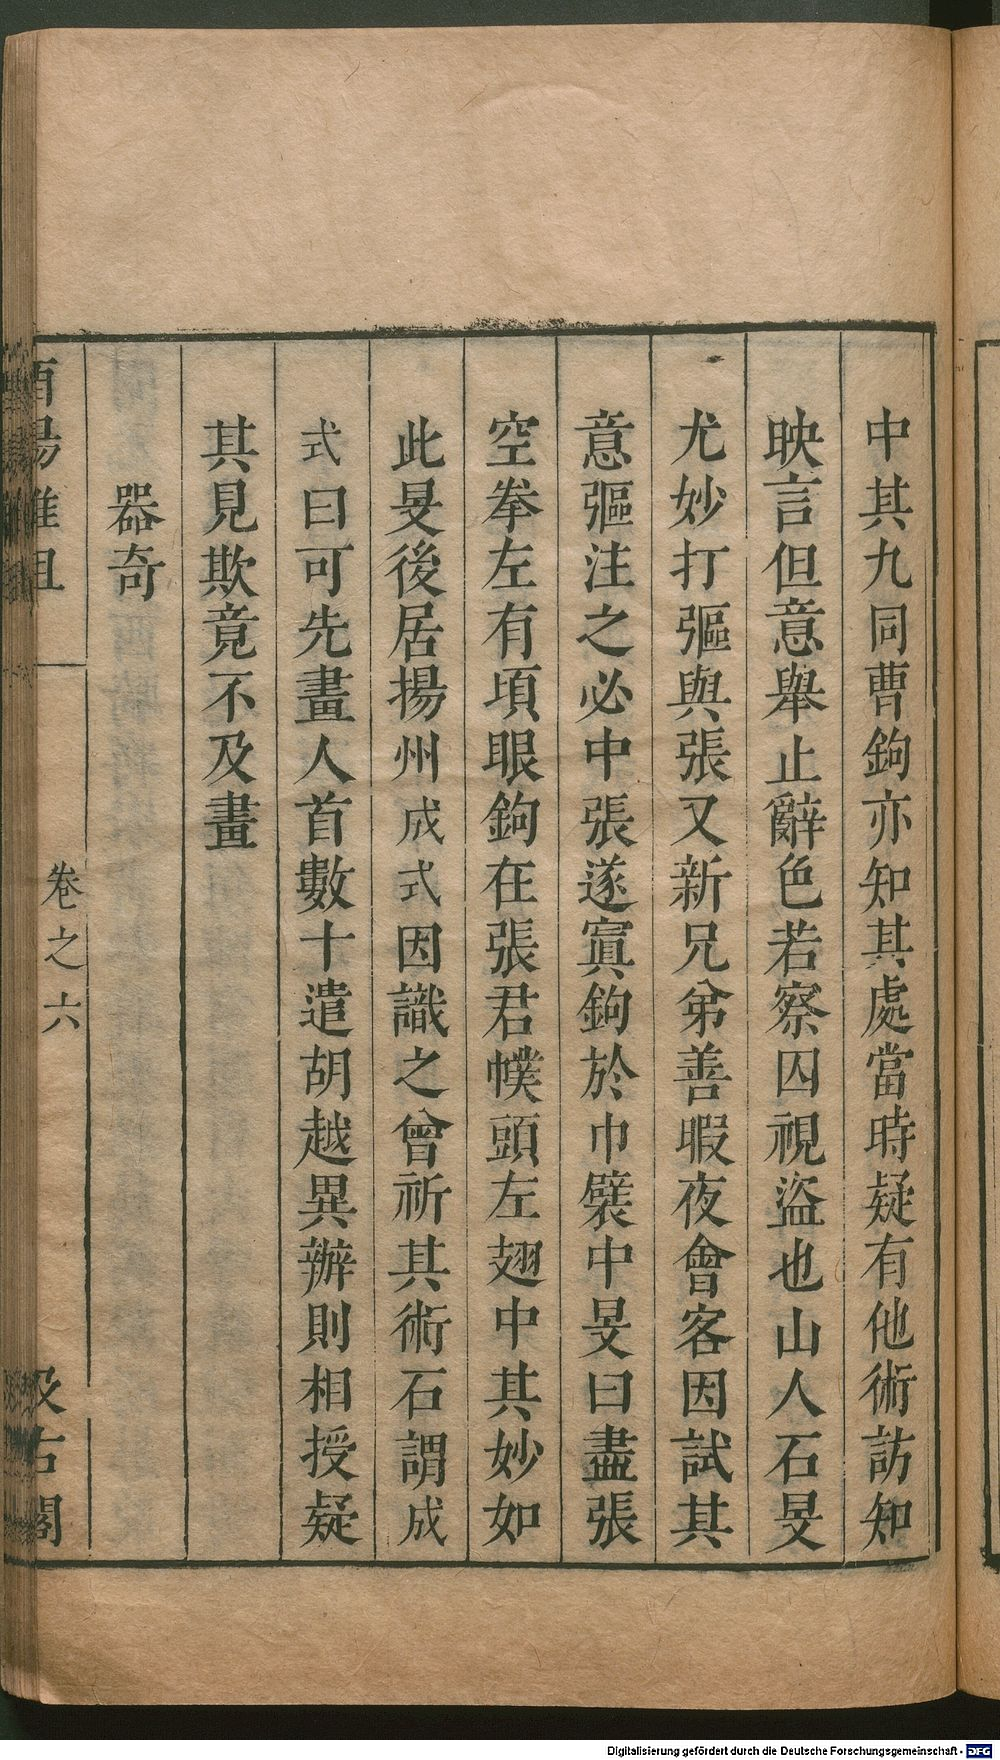 中其九同曹鉤亦知其處當時疑有他術訪知
映言但意舉止辭色若察囚視盜也山人石旻
尤妙打彄與張又新兄弟善暇夜會客因試其
意彄注之必中張遂寘鉤於巾襞中旻曰盡張
空拳左有頃眼鉤在張君幞頭左翅中其妙如
此旻後居揚州成式因識之曾祈其術石謂成
式曰可先畫人首數十遣胡越異辦則相授疑
其見欺竟不及畫
器奇
酉陽雜俎
卷之六
汲古閣
Digitalisierung gefördert durch die Deutsche Forschungsgemeinschaft - DFG